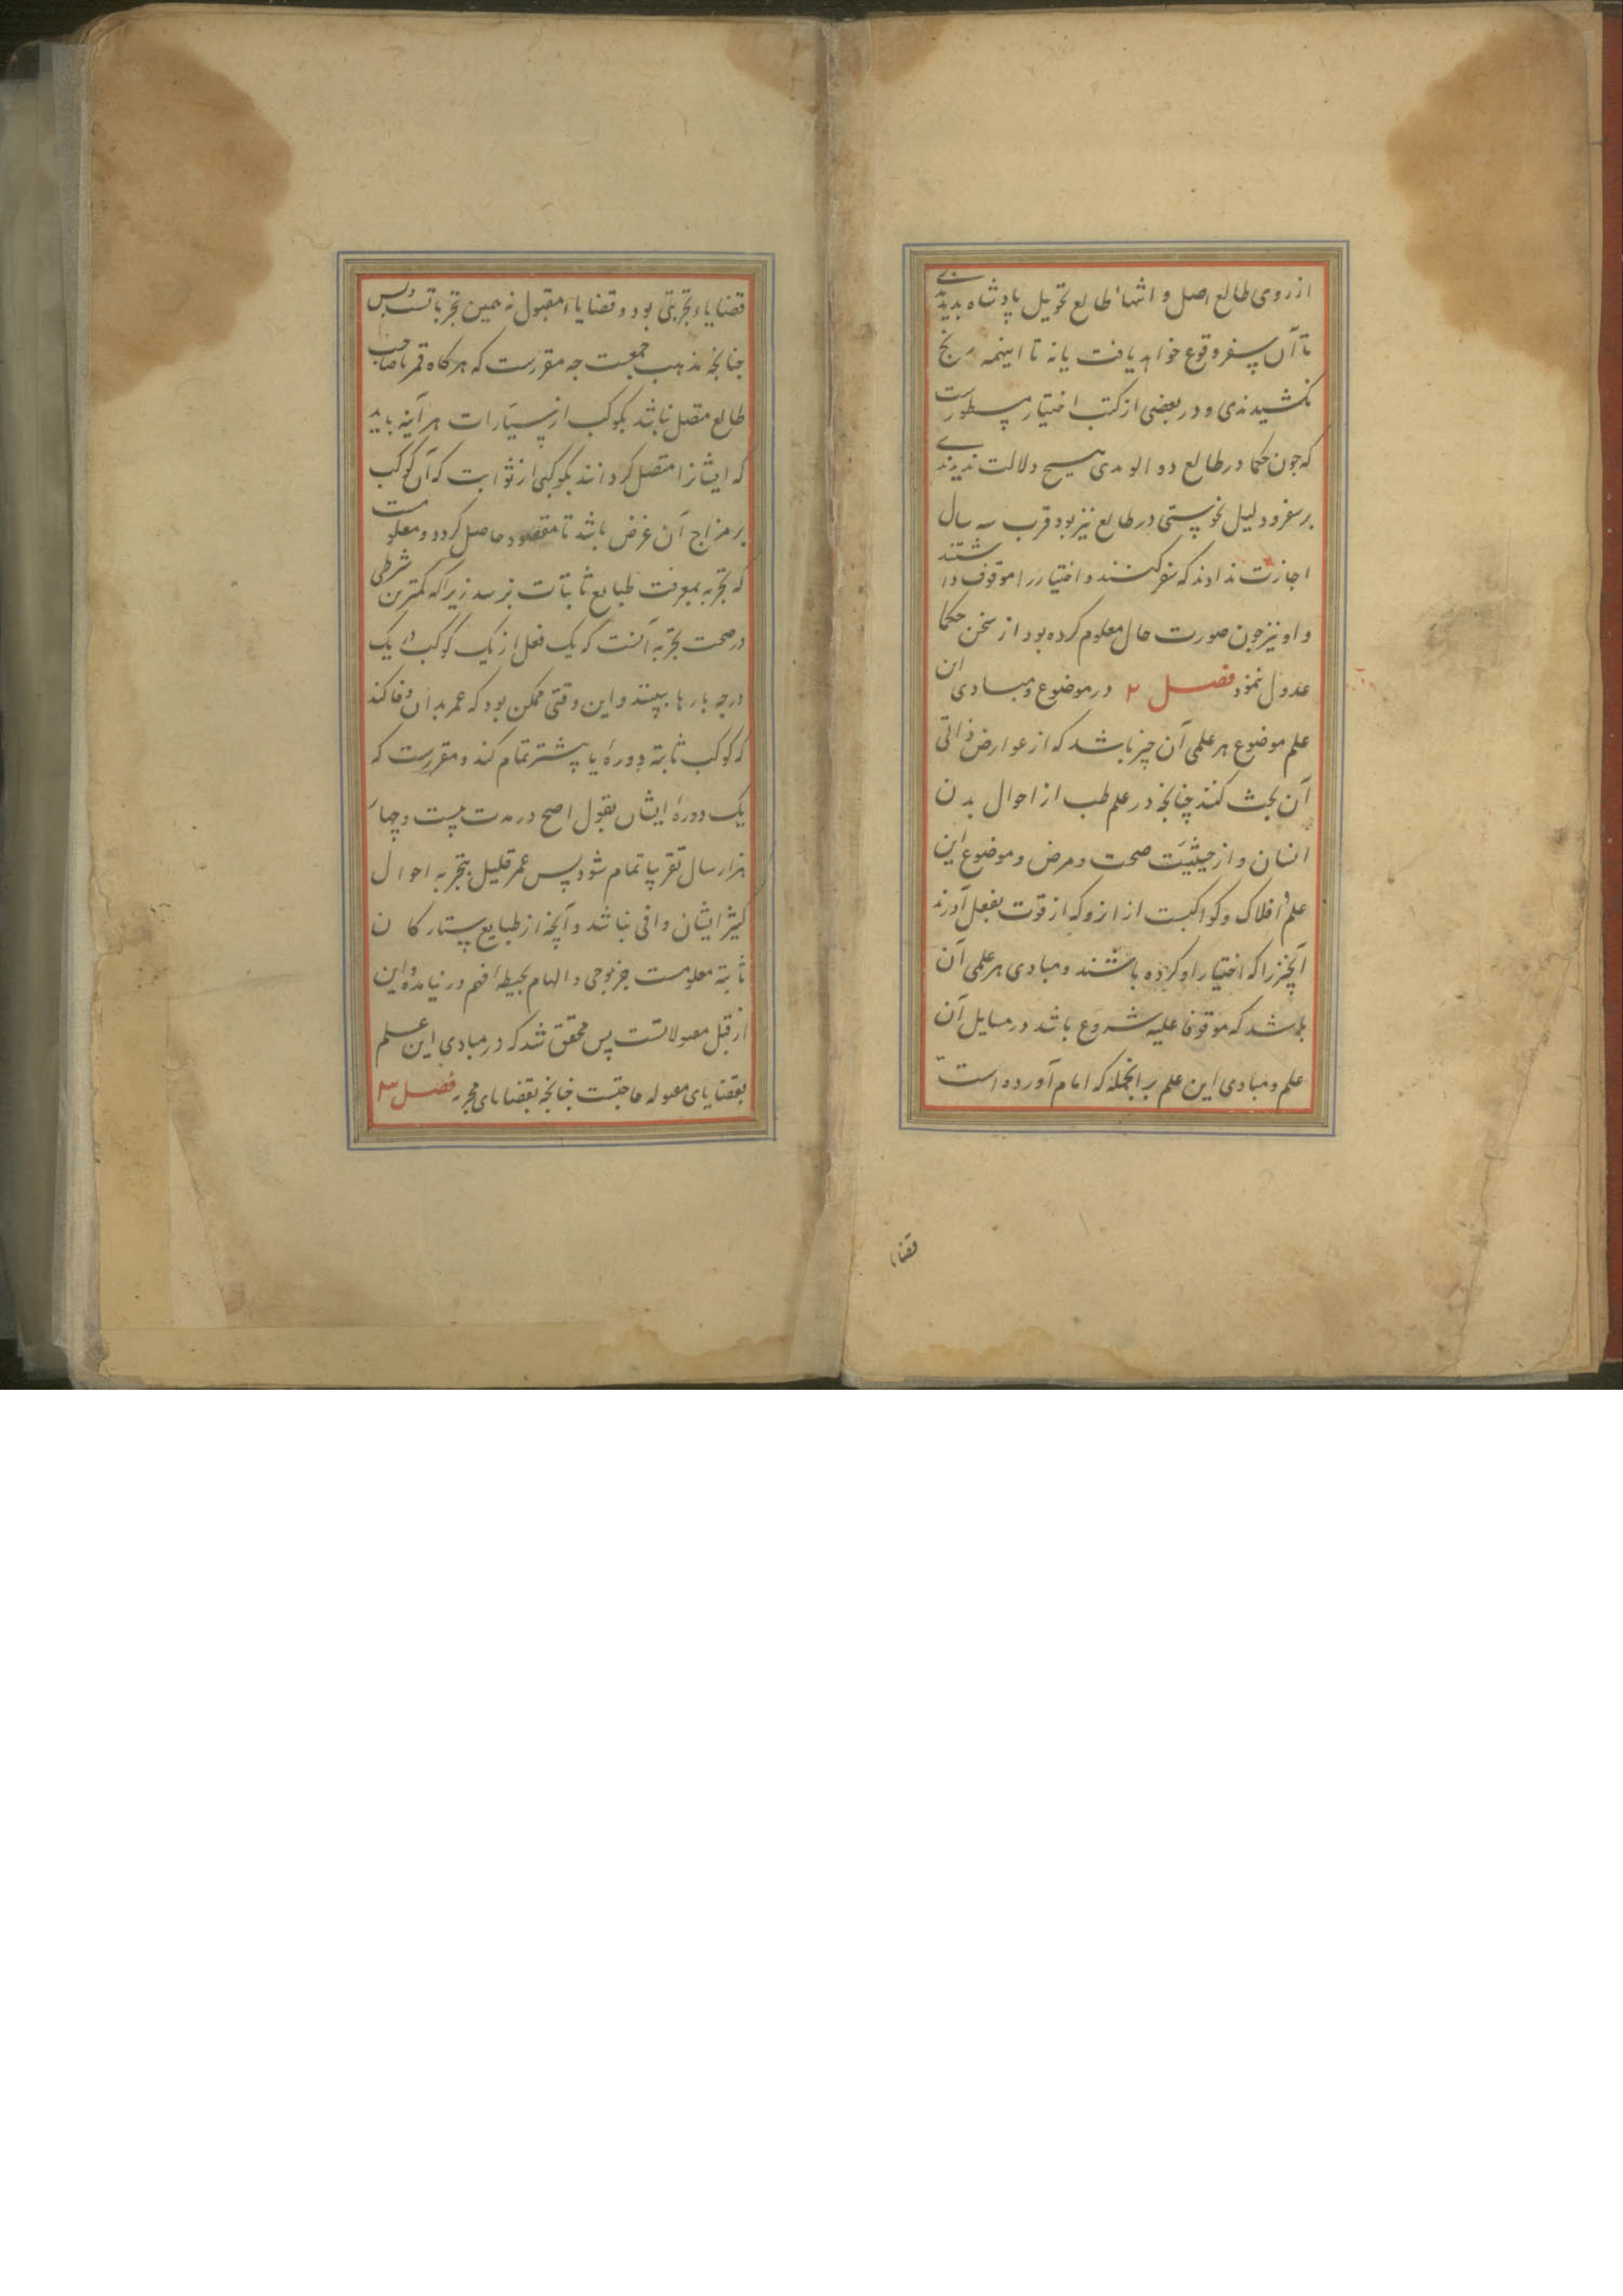 از روی طالع اصل و انتهاء طالع تحویل پادشاه بدیدندی
تا آن سفر وقوع خواهد یافت یا نه تا اینهمه رنج
نکشیدندی و در بعضی از کتب اختیار مسطورست
که جون حکما در طالع ذو الومدی هیچ دلالت ندیدندی
بر سفر و دلیل نحوستی در طالع نیز بود قرب سه سال
اجازت ندادند که سفر کنند و اختیار را موقوف داشتند
و او نیز جون صورت حال معلوم کرده بود از سخن حکما
عدول ننمود فصل ۲ در موضوع و مبادی این
علم موضوع هر علمی آن چیز باشد که از عوارض ذاتی
آن بحث کنند چنانچه در علم طب از احوال بدن
انسان و از حیثیّت صحت و مرض و موضوع این
علم افلاک و کواکبست از انرو که از قوت بفعل آورند
آنچیز را که اختیار او کرده باشند و مبادی هر علمی آن
باشد که موقوفا علیه شروع باشد در مسایل آن
علم و مبادی این علم بر انجمله که امام آورده است
قضایا
قضایاء تجربتی بود و قضایاء مقبول نه همین تجرباتست و بس
جنانچه مذهب جمعیست جه مقررست که هرکاه قمر با صاحب
طالع متصل نباشد بکوکب از سیّارات هر آینه باید
که ایشانرا متصل کردانند بکوکبی از ثوابت که آن کوکب
بر مزاج آن غرض باشد تا مقصود حاصل کردد و معلومست
که تجربه بمعرفت طبایع ثابتات نرسد زیرا که کمترین شرطی
در صحت تجربه آنست که یک فعل از یک کوکب در یک
درجه بارها ببینند و این وقتی ممکن بود که عمر بدان وفا کند
که کوکب ثابته دورۀ یا پیشتر تمام کند و مقررست که
یک دورۀ ایشان بقول اصح در مدت بیست و چهار
هزار سال تقریبا تمام شود پس عمر قلیل بتجربه احوال
کثیر ایشان وافی نباشد و آنچه از طبایع ستارکان
ثابته معلومست جز بوحی و الهام بحیطه افهم در نیامده و این
از قبل مقبولاتست پس محقق شد که در مبادی این علم
بقضایای مقبوله حاجتست جنانچه بقضایای مجربه فصل ۳